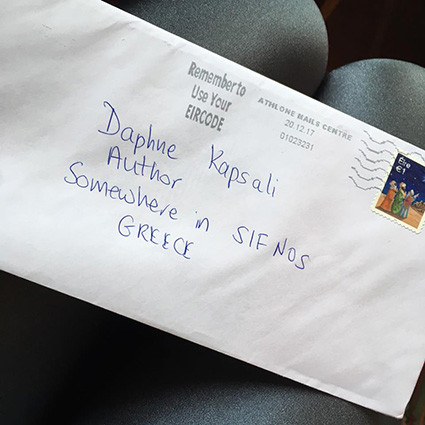 Remember to
Use Your
EIRCODE
ATHLONE MAILS CENTRE
20.12.17
01023231
Éire
€1
Daphne Kapsali
Author
Somewhere in SIFNOS
GREECE